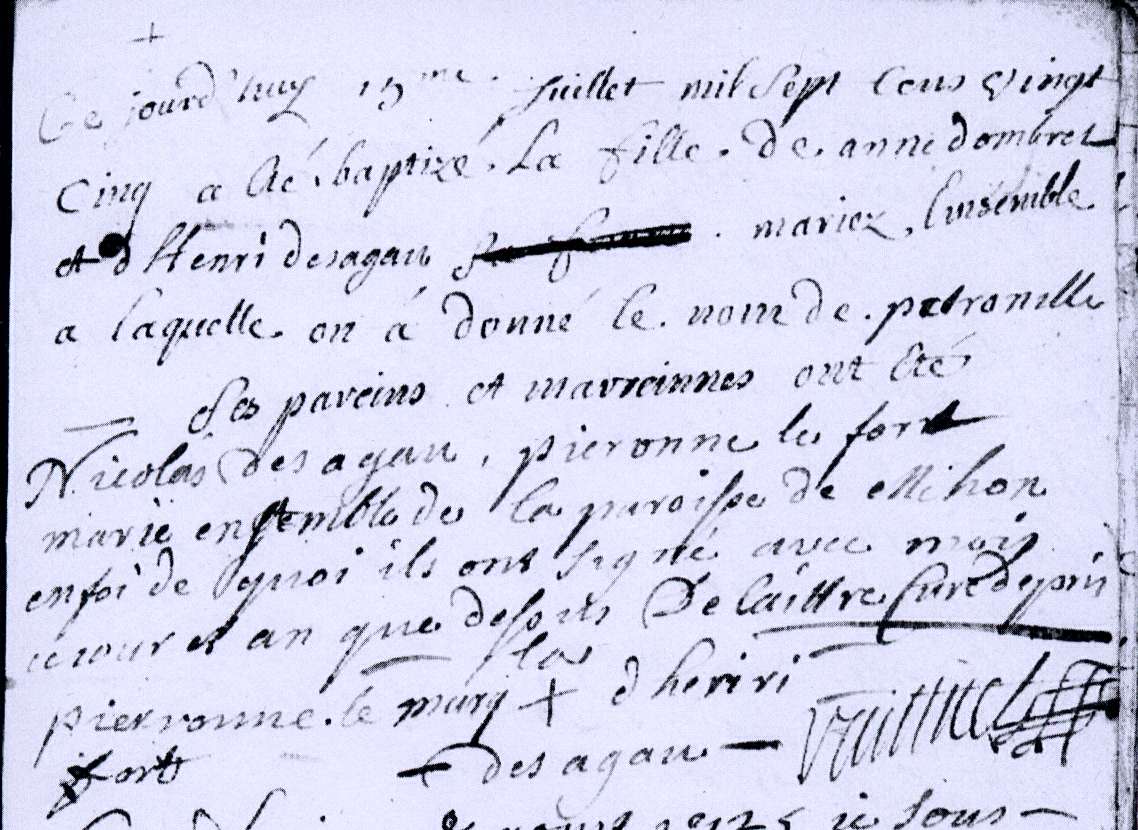 Ce jourd'huy 15me. juillet mil sept cens vingt
cinq a été baptizé. La fille. de. anne dombret
et d Henri desagau sa femme. mariez, Ensemble.
a laquelle. on à donné le. nom de. petronille
ses pareins et marreinnes ont été
Nicolas desagau, pieronne le fort
marié ensemble de la paroisse de Mihon
enfoi de quoi ils ont signé avec mois
jour et an que dessus De laittre Curé
la
pierronne. le marq + d henri
fort desagau
je sous-